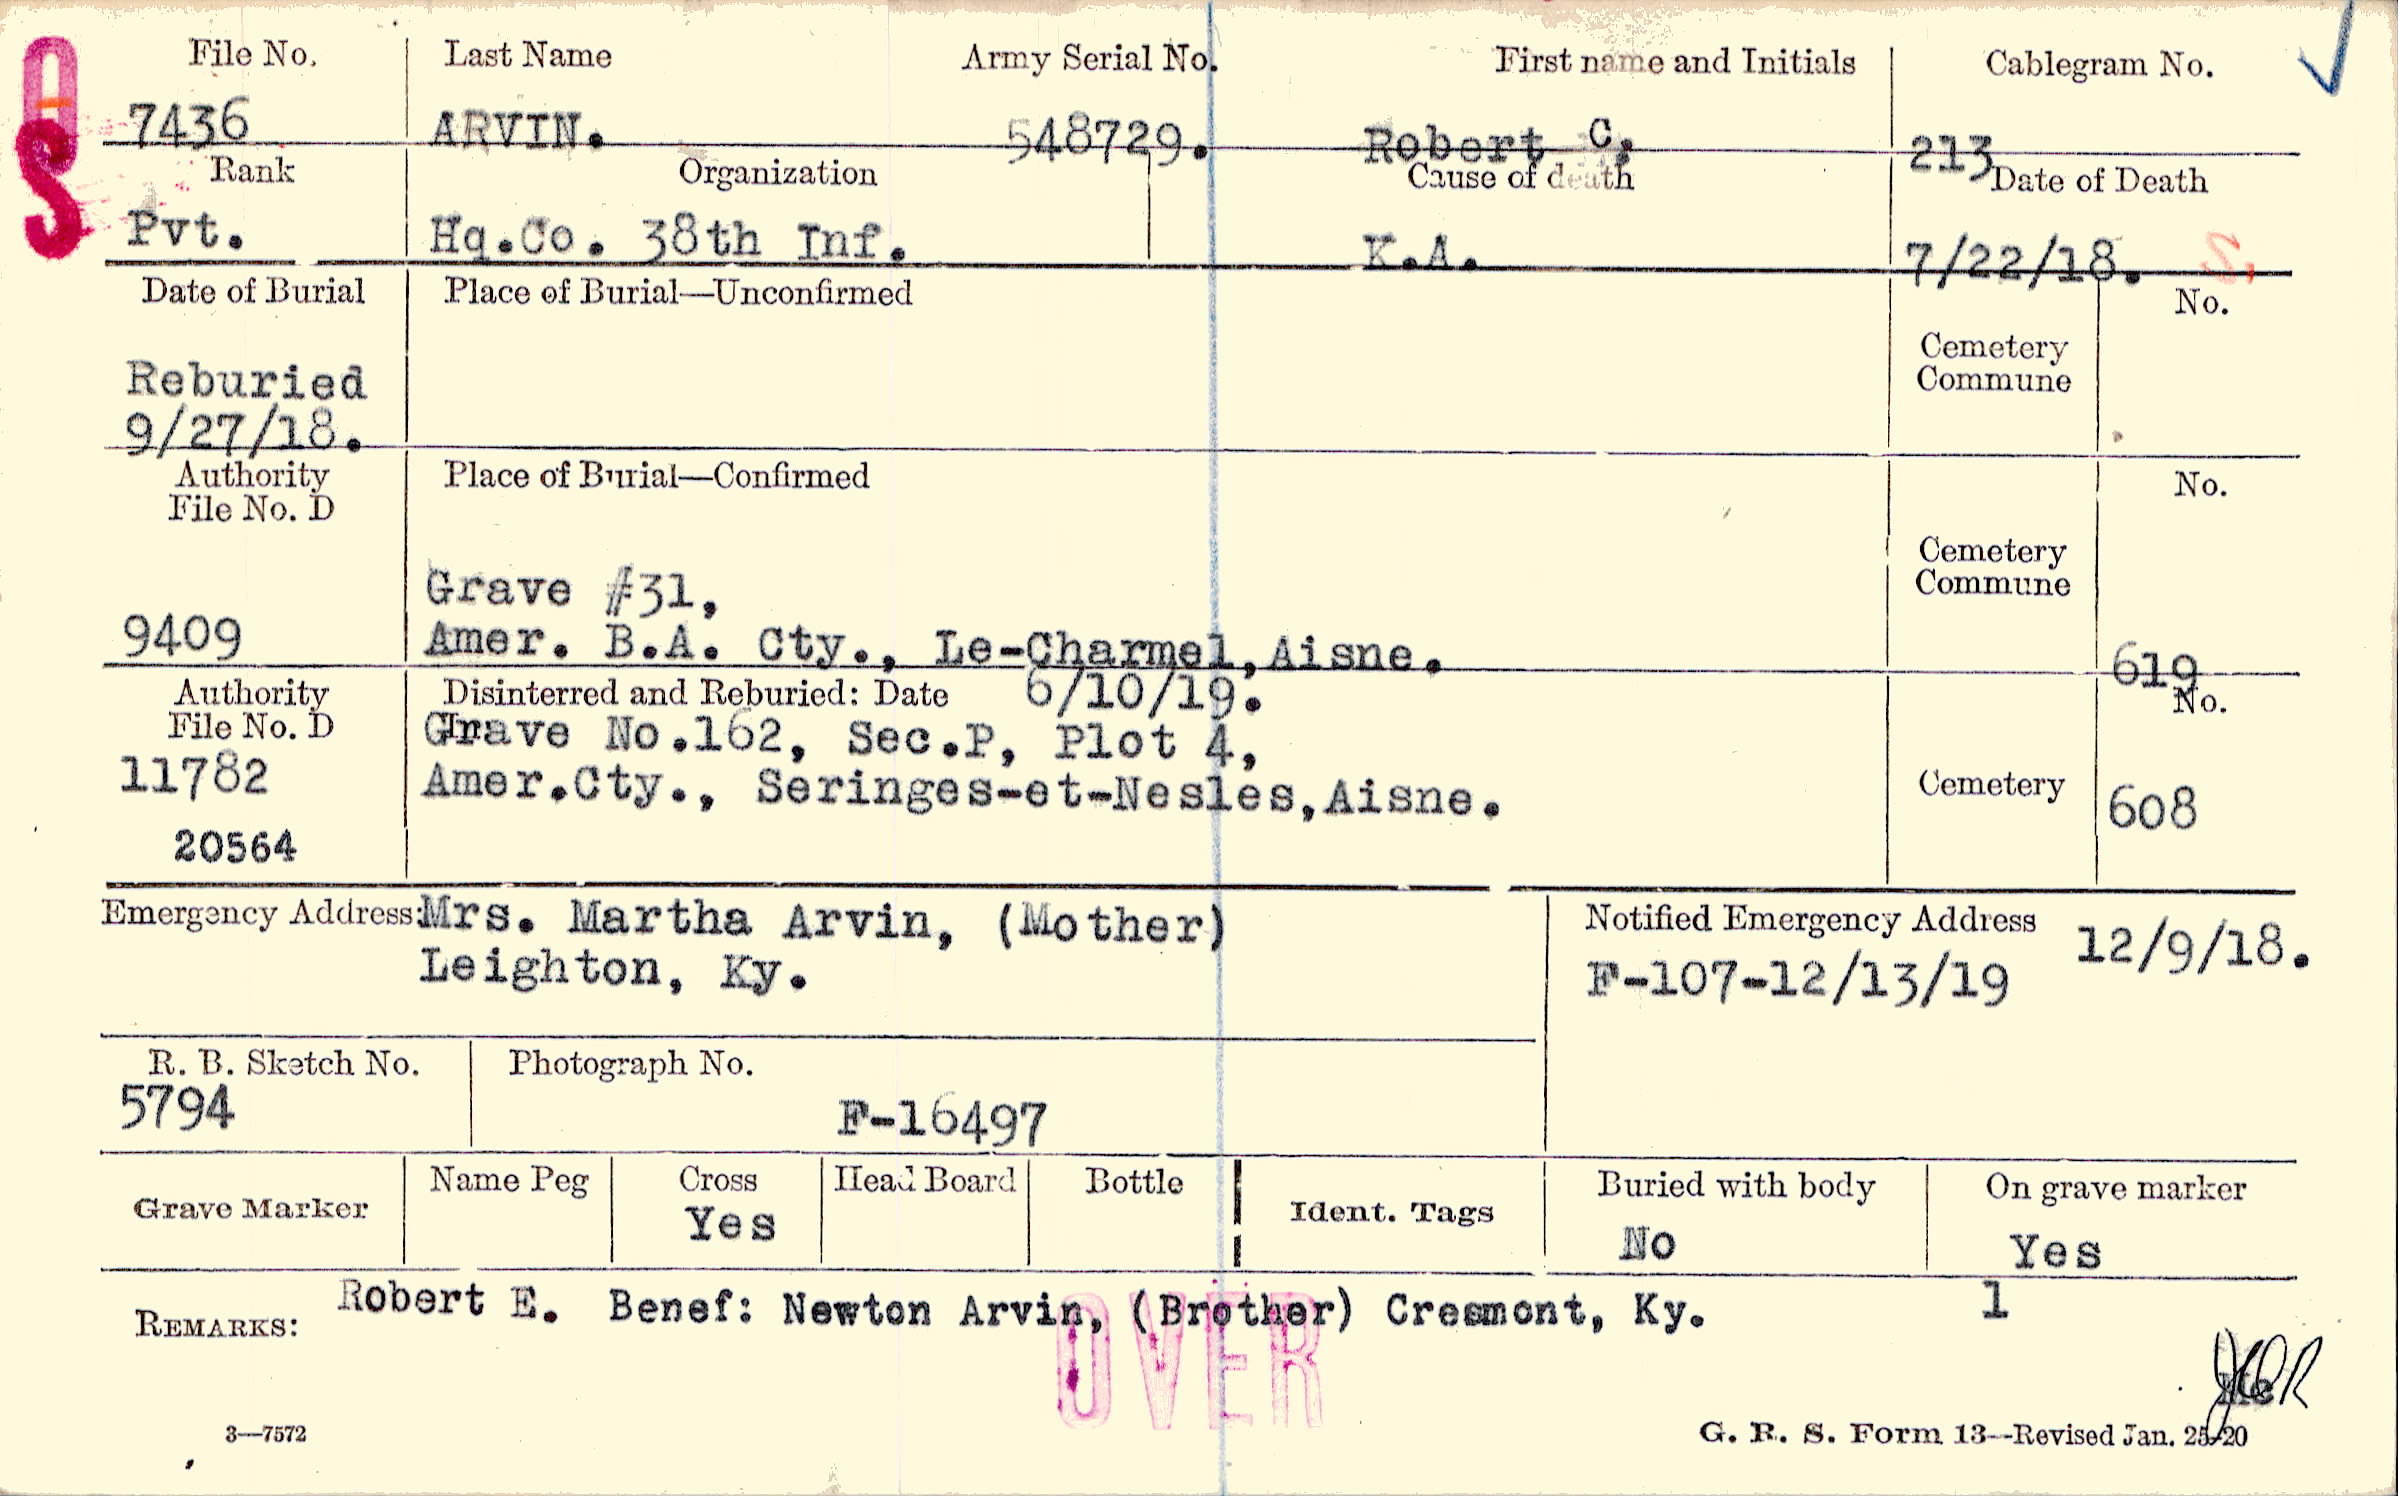 File No. Last Name Army Serial No. First name and Initials Cablegram No.
7436 ARVIN. 548729. Robert C. 213
Rank Organization Cause of death Date of Death
Pvt. Hq.Co. 38th Inf. K.A. 7/22/18. S.
Date of Burial Place of Burial—Unconfirmed No.
Cemetery
Commune
Reburied
9/27/18.
Authority Place of Burial—Confirmed No.
File No. D
Cemetery
Commune
Grave #31,
9409 Amer. B.A. Cty., Le-Charmel, Aisne. 619
Authority Disinterred and Reburied: Date 6/10/19. No.
File No. D Grave No.162, Sec.P, Plot 4,
11782 Amer.Cty., Seringes-et-Nesles,Aisne. Cemetery 608
20564
Emergency Address: Mrs. Martha Arvin, (Mother) Notified Emergency Address 12/9/18.
Leighton, Ky. F-107-12/13/19
R. B. Sketch No. Photograph No.
5794 F-16497
Grave Marker Name Peg Cross Head Board Bottle Ident. Tags Buried with body On grave marker
Yes No Yes
REMARKS: Robert E. Benef: Newton Arvin, (Brother) Cresmont, Ky. 1
OVER
3—7572 G. R. S. Form 13—Revised Jan. 25-20